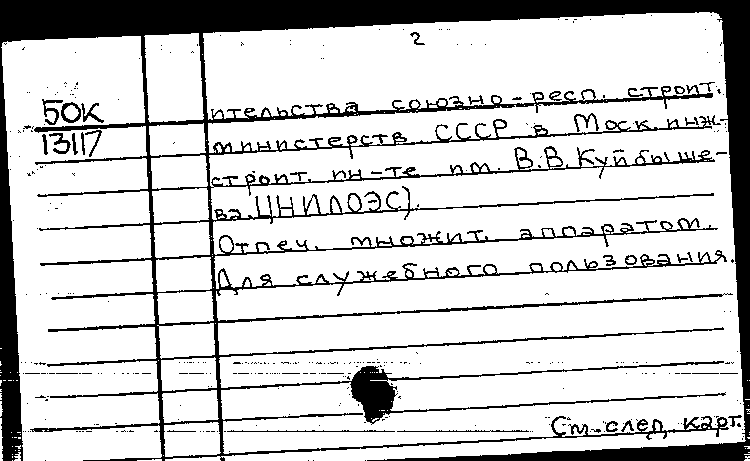 2
50К
13117
ительства союзно-респ. строит.
министерств СССР в Моск. инж-
строит. ин-те им. В.В. Куйбыше-
ва. ЦНИЛОЭС).
Отпеч. множит. аппаратом.
Для служебного пользования.
См. след. карт.